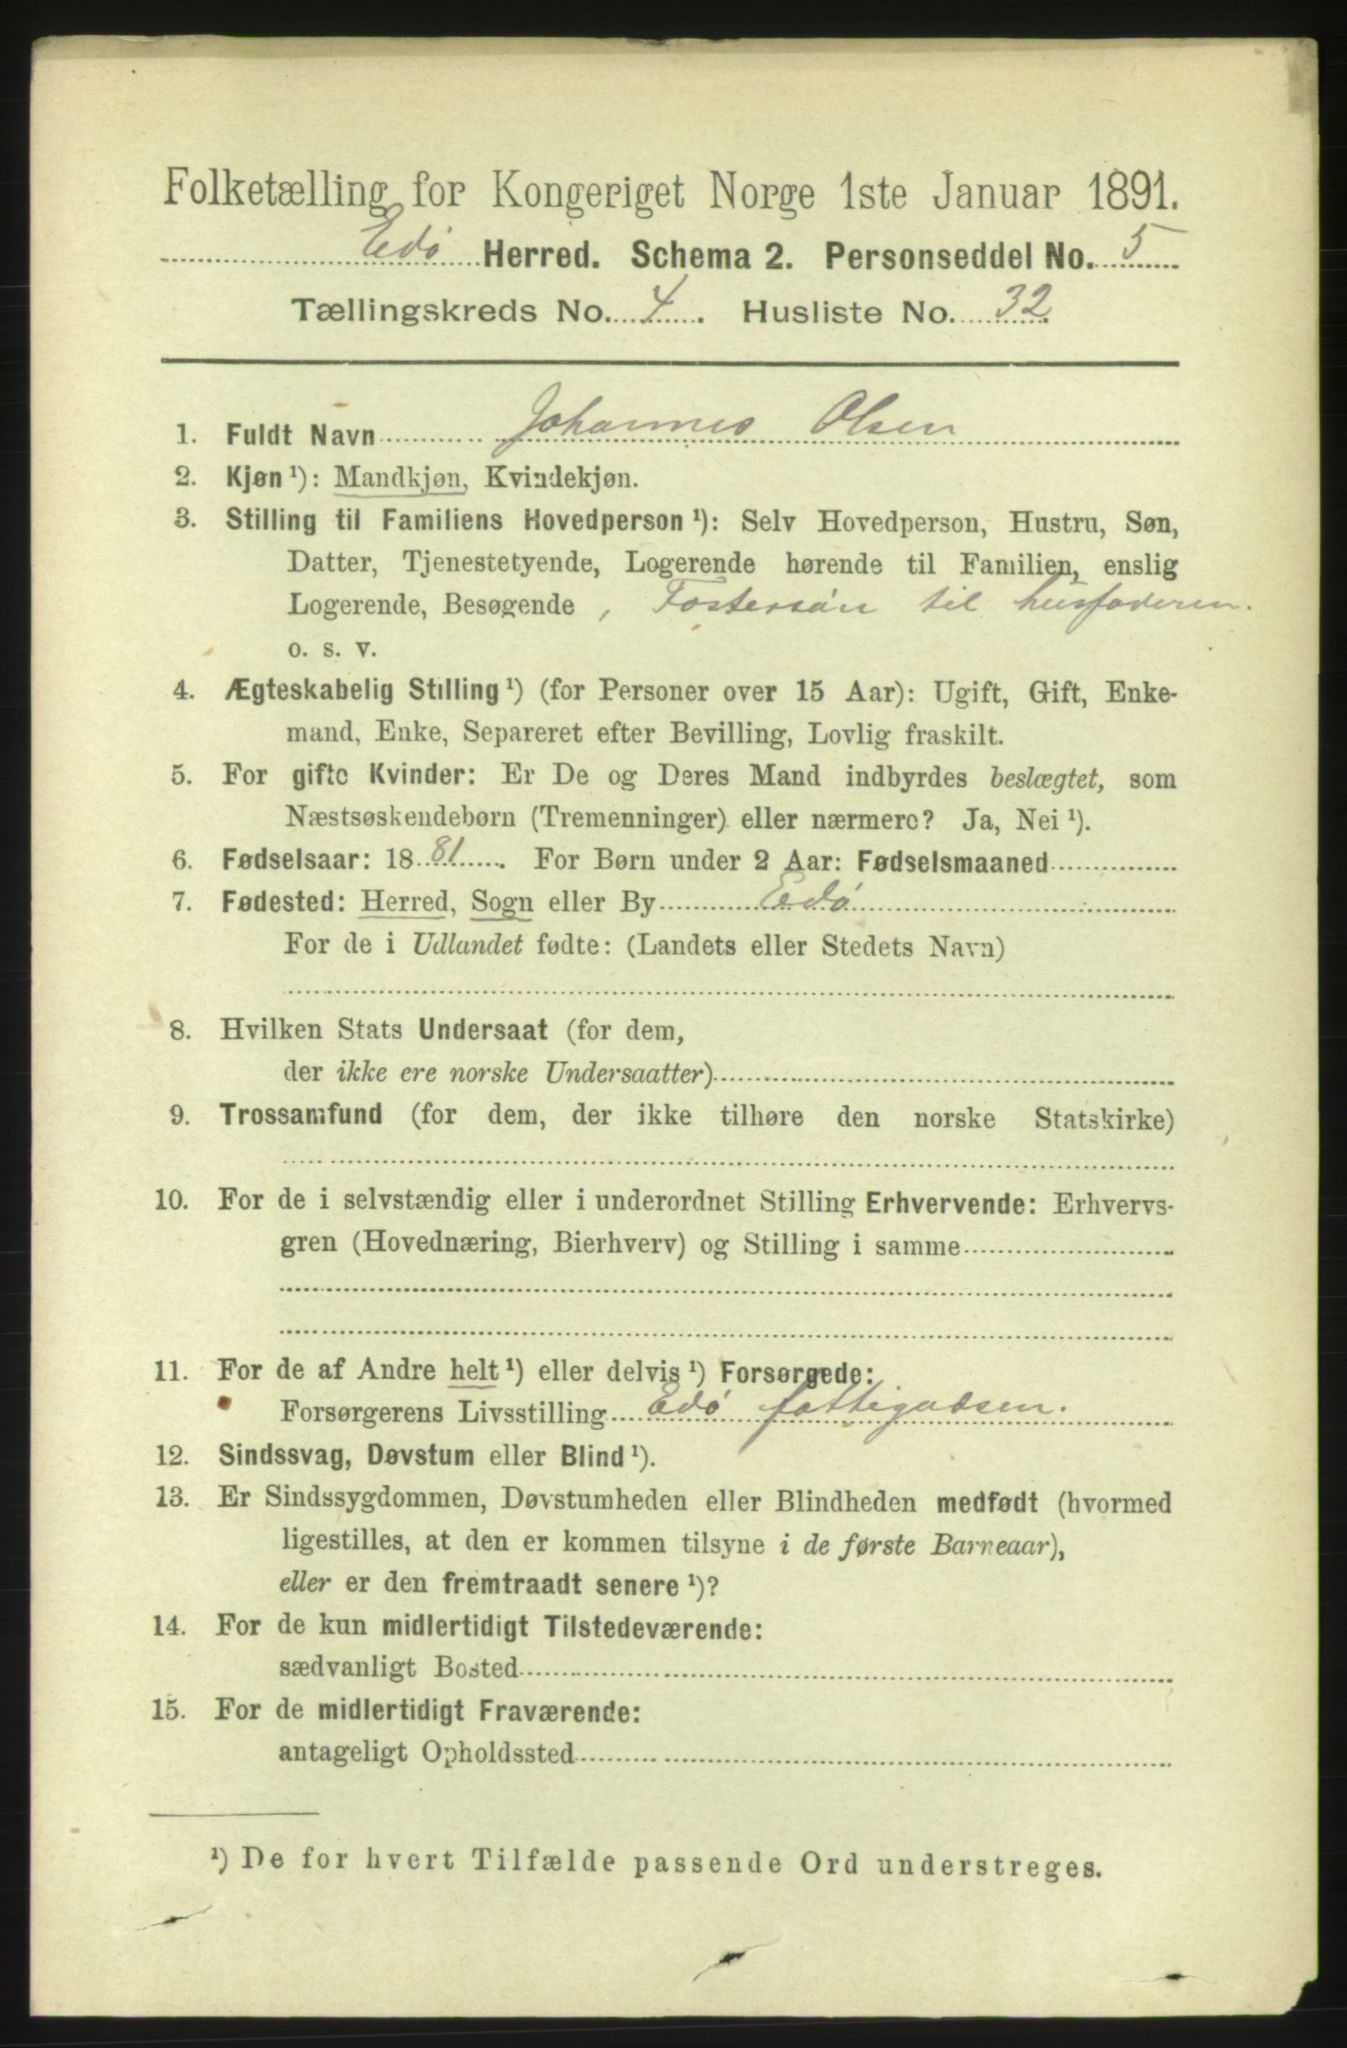 Folketælling for Kongeriget Norge 1ste Januar 1891.
Edø Herred. Schema 2. Personseddel No. 5
Tællingskreds No. 4. Husliste No. 32
1. Fuldt Navn Johannes Olsen
2. Kjøn ¹): Mandkjøn, Kvindekjøn.
3. Stilling til Familiens Hovedperson ¹): Selv Hovedperson, Hustru, Søn,
Datter, Tjenestetyende, Logerende hørende til Familien, enslig
Logerende, Besøgende, Fostersøn til husfaderen.
o. s. v.
4. Ægteskabelig Stilling ¹) (for Personer over 15 Aar): Ugift, Gift, Enke-
mand, Enke, Separeret efter Bevilling, Lovlig fraskilt.
5. For gifte Kvinder: Er De og Deres Mand indbyrdes beslægtet, som
Næstsøskendebørn (Tremenninger) eller nærmere? Ja, Nei ¹).
6. Fødselsaar: 1881. For Børn under 2 Aar: Fødselsmaaned
7. Fødested: Herred, Sogn eller By Edø
For de i Udlandet fødte: (Landets eller Stedets Navn)
8. Hvilken Stats Undersaat (for dem,
der ikke ere norske Undersaatter)
9. Trossamfund (for dem, der ikke tilhøre den norske Statskirke)
10. For de i selvstændig eller i underordnet Stilling Erhvervende: Erhvervs-
gren (Hovednæring, Bierhverv) og Stilling i samme
11. For de af Andre helt ¹) eller delvis ¹) Forsørgede:
Forsørgerens Livsstilling Edø fattigvæsen.
12. Sindssvag, Døvstum eller Blind ¹).
13. Er Sindssygdommen, Døvstumheden eller Blindheden medfødt (hvormed
ligestilles, at den er kommen tilsyne i de første Barneaar),
eller er den fremtraadt senere ¹)?
14. For de kun midlertidigt Tilstedeværende:
sædvanligt Bosted
15. For de midlertidigt Fraværende:
antageligt Opholdssted
¹) De for hvert Tilfælde passende Ord understreges.